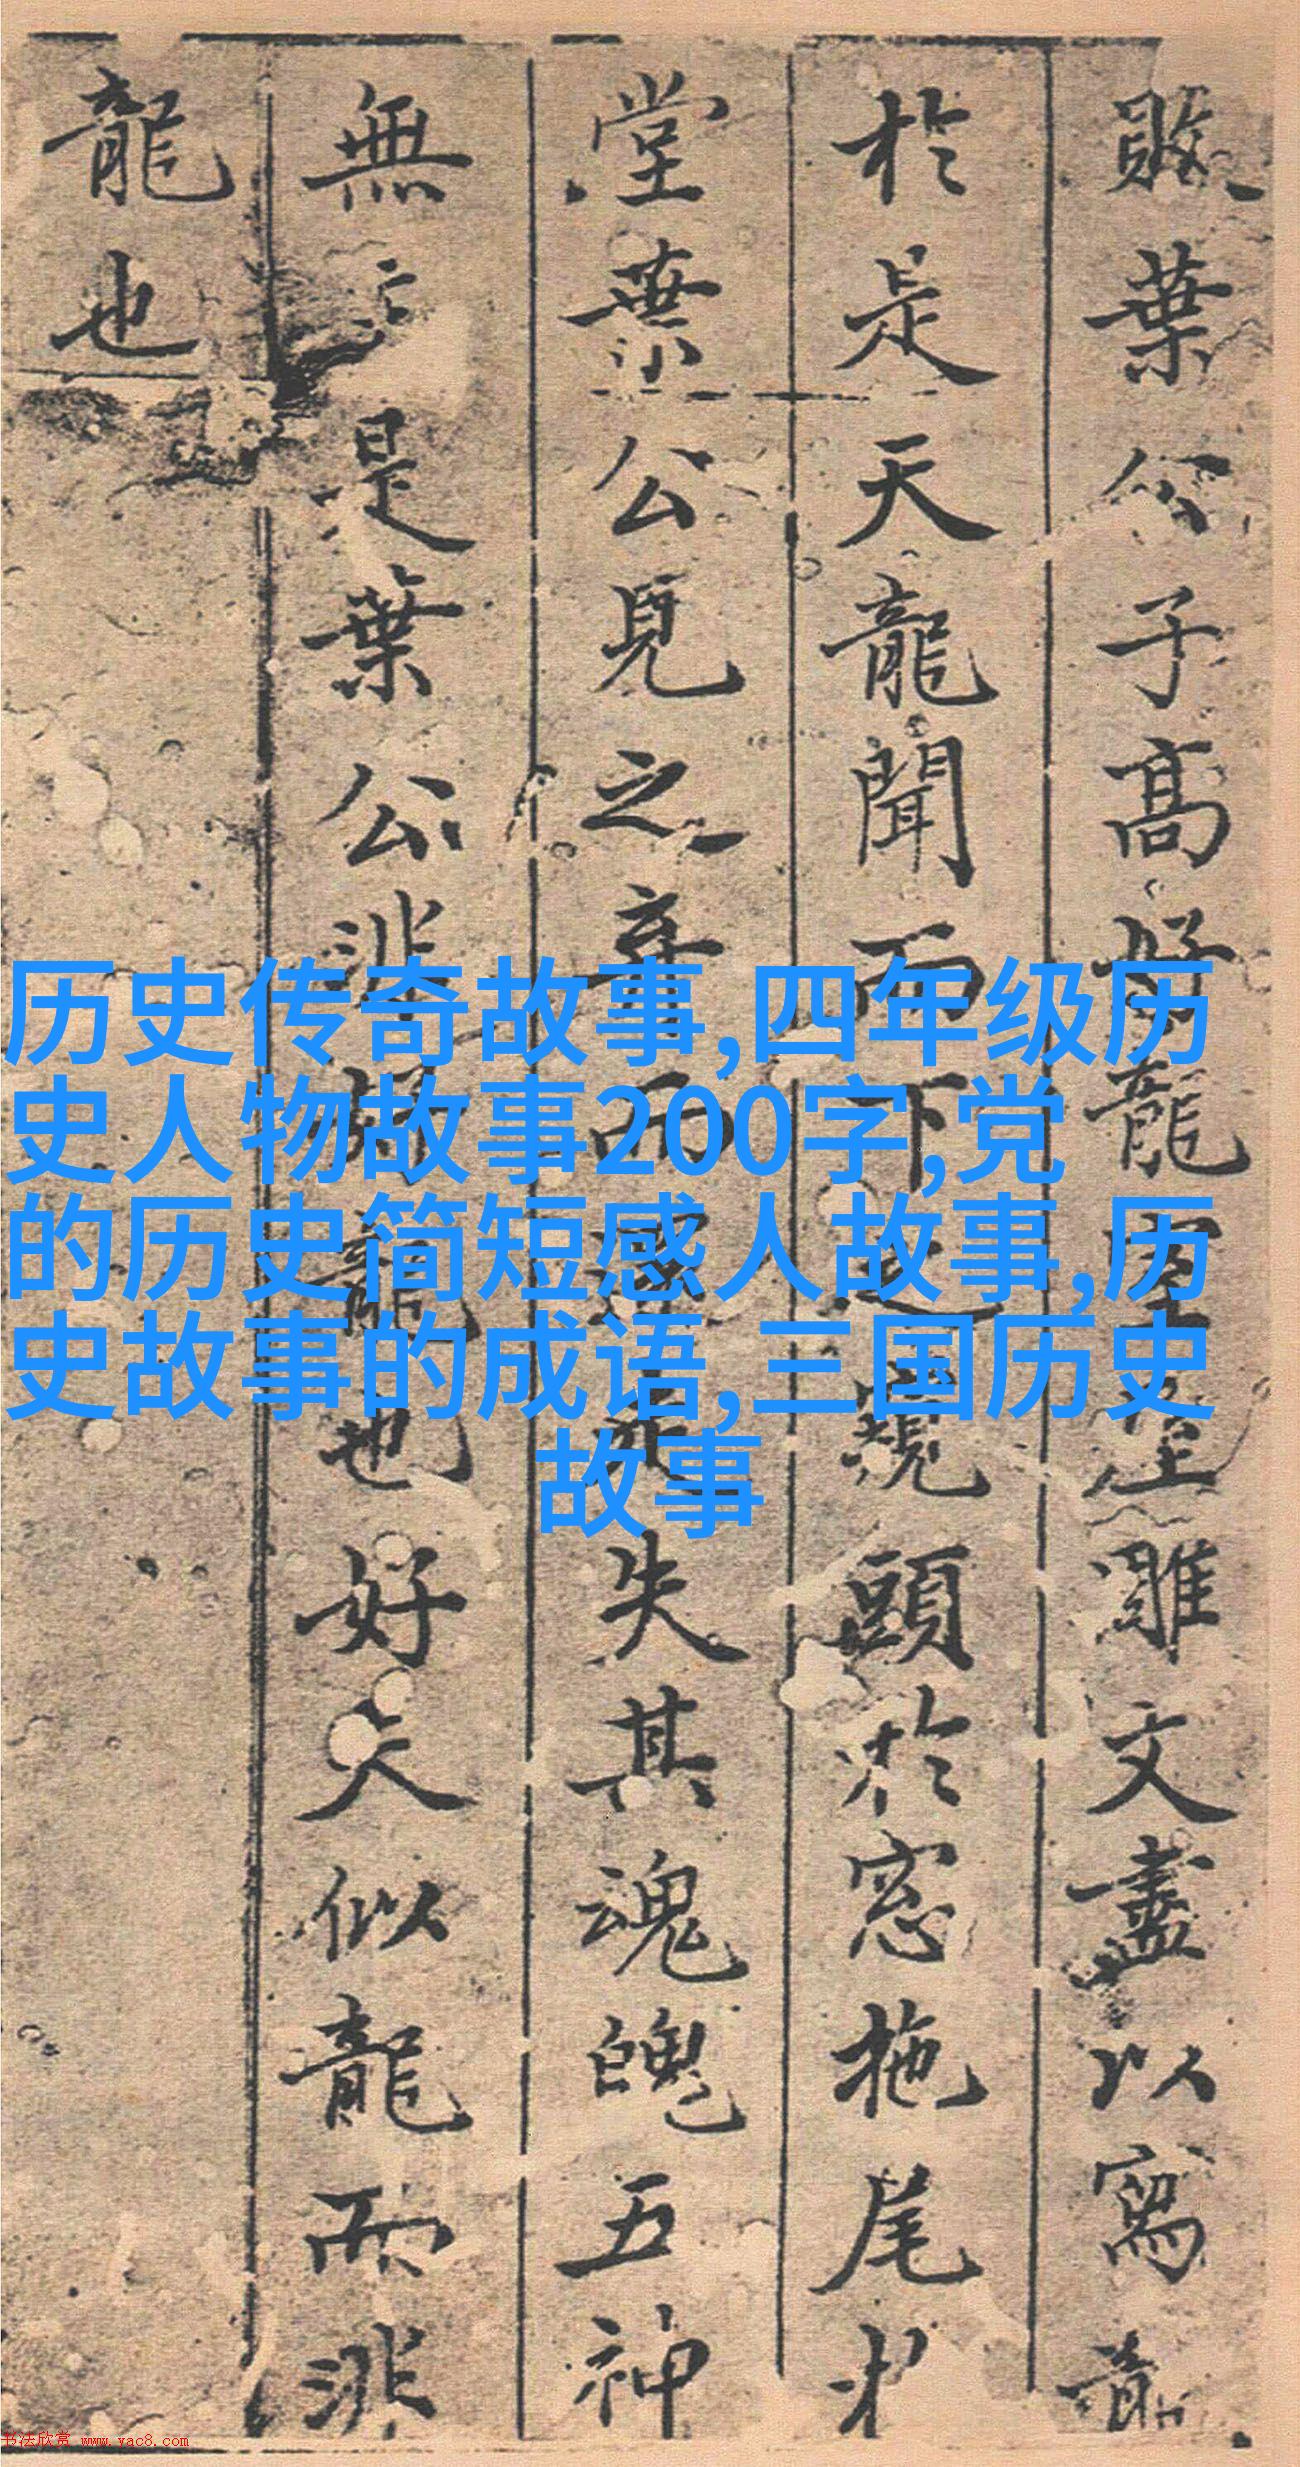 葉公子高好龍室屋雕文盡以寫龍
於是天龍聞而下之窺頭於窓拖尾於
堂葉公見之弃而還走失其魂魄五神
無主是葉公非好龍也好夫似龍而非
龍也
历史传奇故事,四年级历
史人物故事200字,党
的历史简短感人故事,历
史故事的成语,三国历史
故事
书法欣赏 www.yac8.com